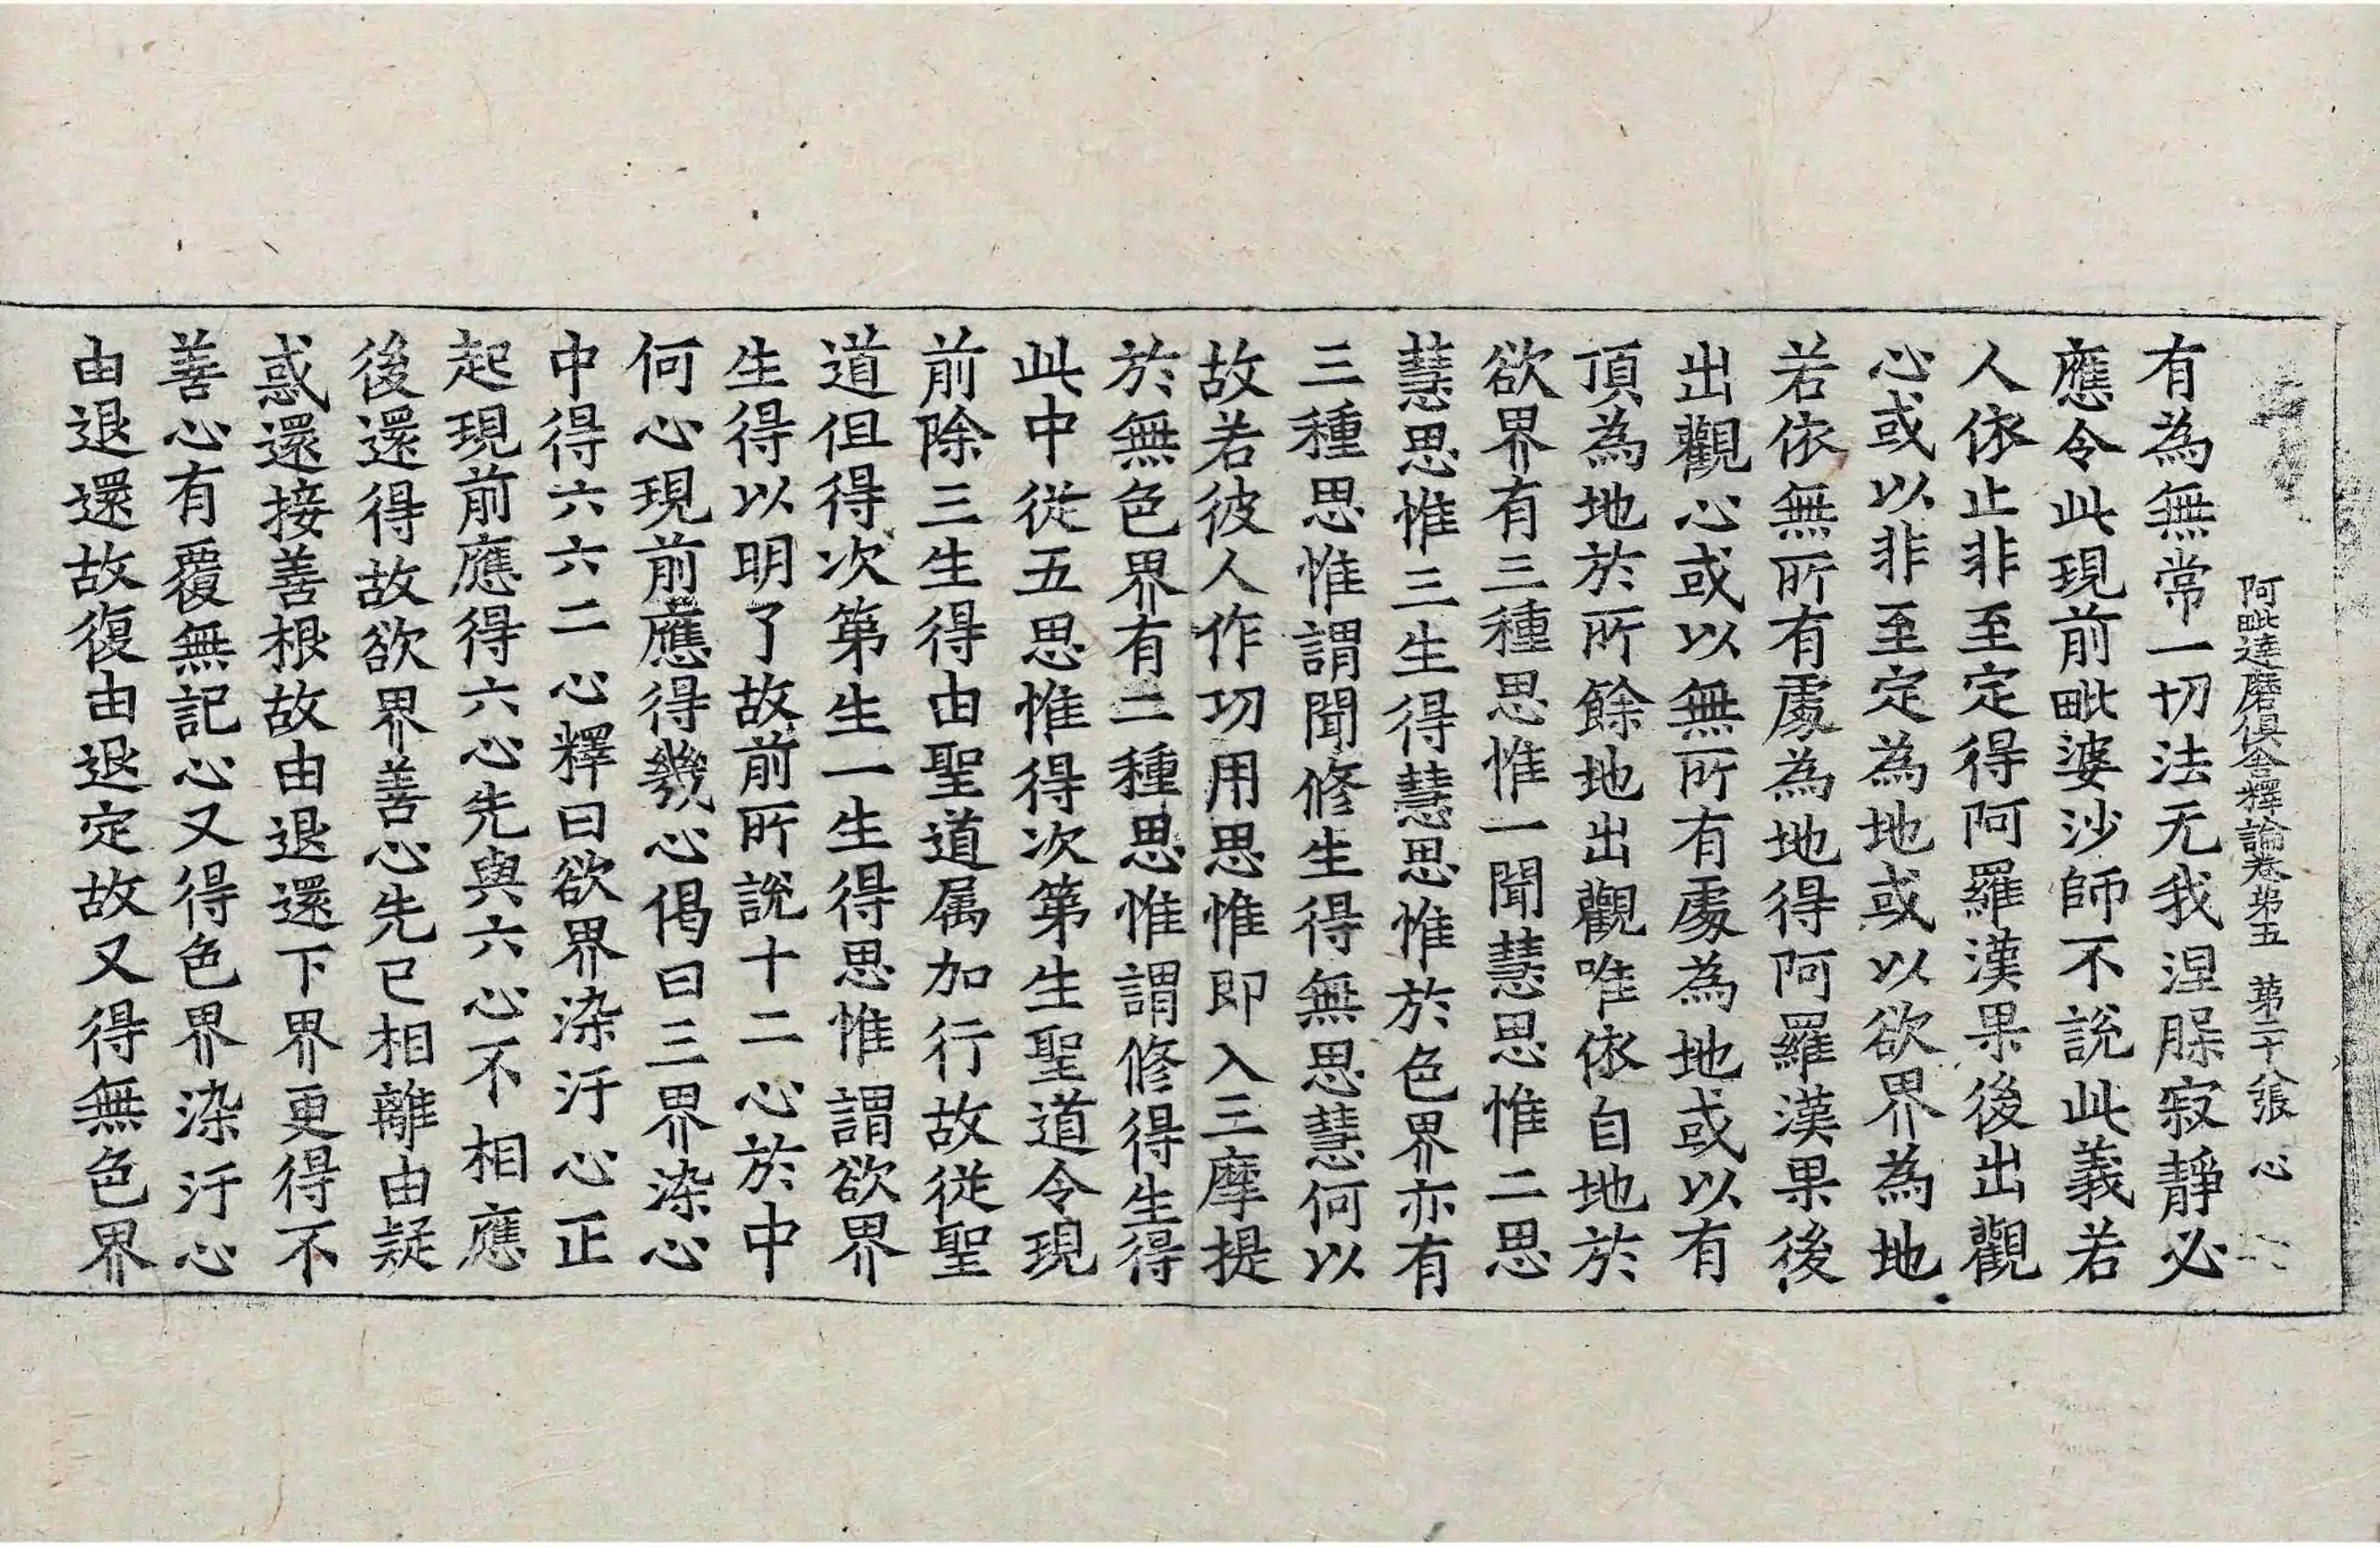 阿毗達磨俱舍釋論卷第五　第二十八張　心
有為無常一切法无我涅槃寂靜必
應令此現前毗婆沙師不說此義若
人依止非至定得阿羅漢果後出觀
心或以非至定為地或以欲界為地
若依無所有處為地得阿羅漢果後
出觀心或以無所有處為地或以有
頂為地於所餘地出觀唯依自地於
欲界有三種思惟一聞慧思惟二思
慧思惟三生得慧思惟於色界亦有
三種思惟謂聞修生得無思慧何以
故若彼人作功用思惟即入三摩提
於無色界有二種思惟謂修得生得
此中從五思惟得次第生聖道令現
前除三生得由聖道属加行故從聖
道但得次第生一生得思惟謂欲界
生得以明了故前所說十二心於中
何心現前應得幾心偈曰三界染心
中得六六二心釋曰欲界染汙心正
起現前應得六心先與六心不相應
後還得故欲界善心先已相離由疑
惑還接善根故由退還下界更得不
善心有覆無記心又得色界染汙心
由退還故復由退定故又得無色界